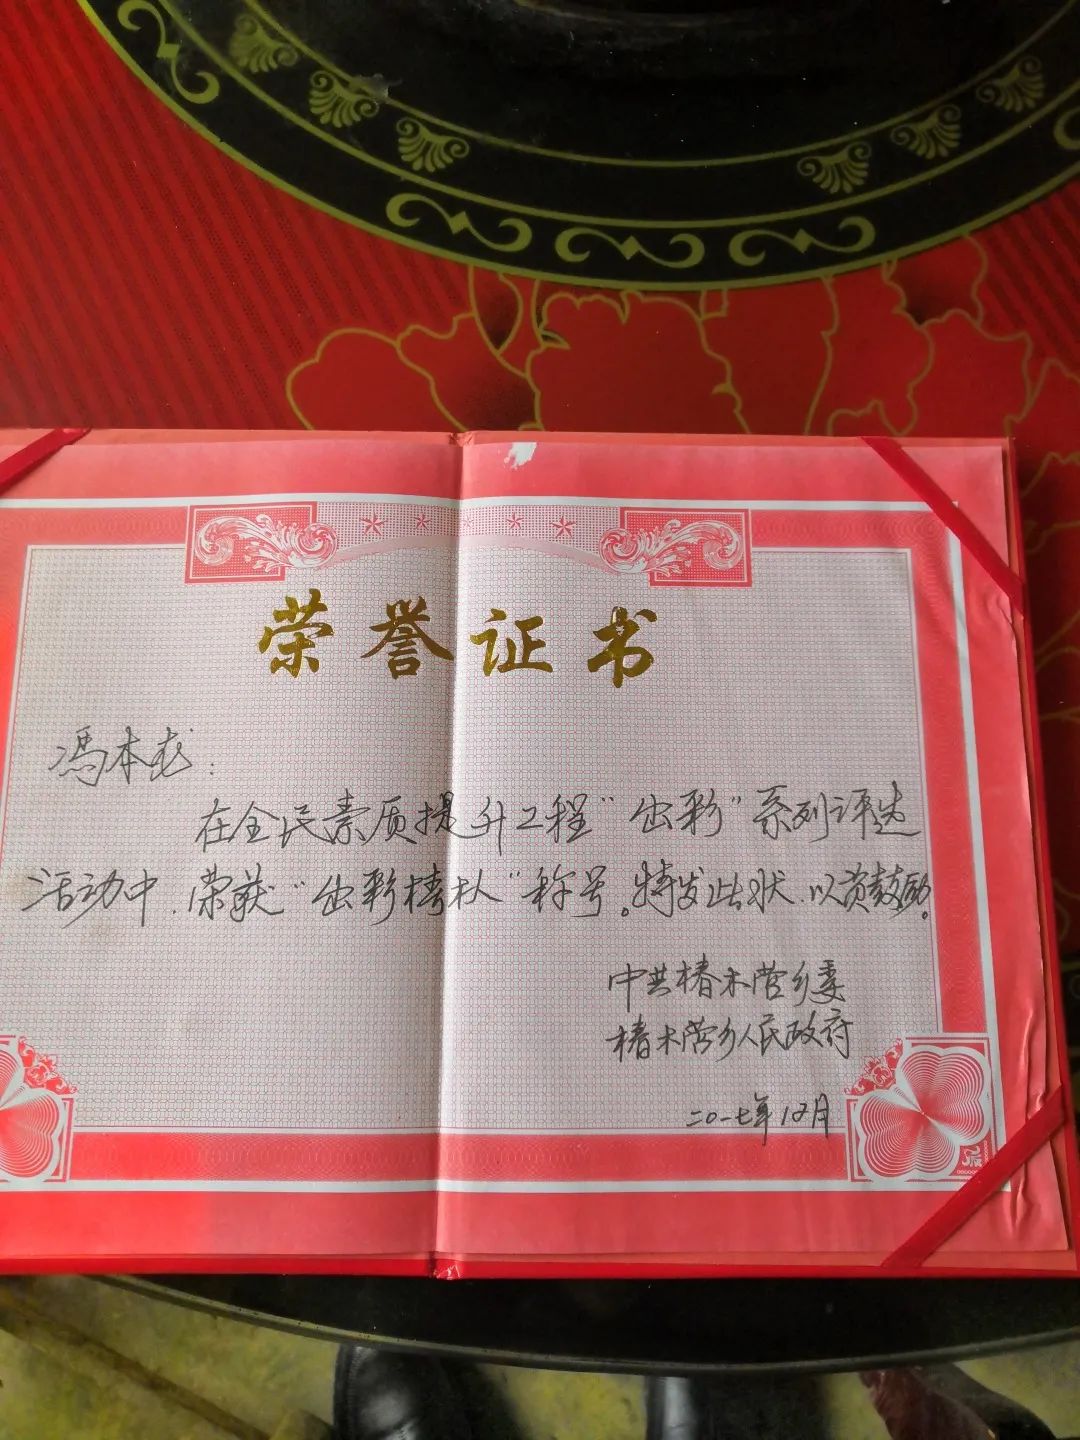 荣誉证书
冯本龙：
在全民素质提升工程“出彩”系列评选
活动中，荣获“出彩椿朳”称号。特发此状，以资鼓励。
中共椿木营乡委
椿木营乡人民政府
二〇一七年12月